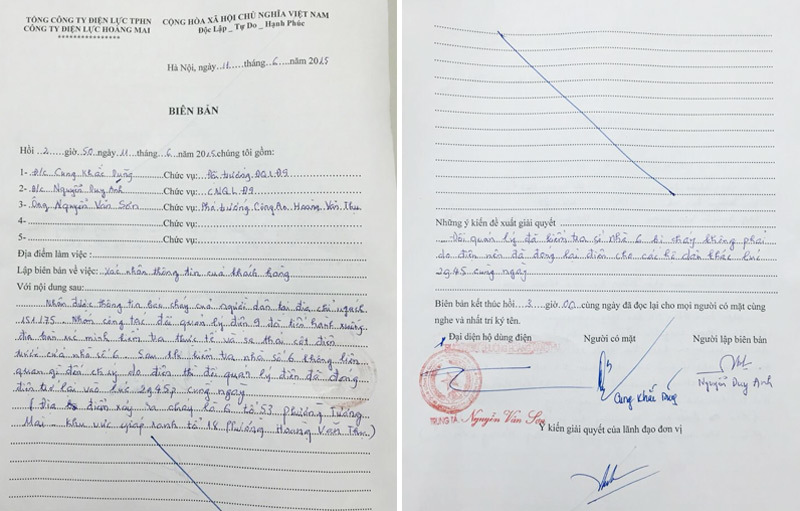 TỔNG CÔNG TY ĐIỆN LỰC TPHN
CÔNG TY ĐIỆN LỰC HOÀNG MAI
****************
CỘNG HÒA XÃ HỘI CHỦ NGHĨA VIỆT NAM
Độc Lập _ Tự Do _ Hạnh Phúc
Hà Nội, ngày 11 tháng 6 năm 2015
BIÊN BẢN
Hồi 2 giờ 50 ngày 11 tháng 6 năm 2015 chúng tôi gồm:
1- Đ/c Cung Khắc Dụng Chức vụ: Đội trưởng ĐQLĐ9
2- Đ/c Nguyễn Duy Anh Chức vụ: CNQLĐ9
3- Ông Nguyễn Văn Sơn Chức vụ: Phó trưởng Công An Hoàng Văn Thụ
4- Chức vụ:
5- Chức vụ:
Địa điểm làm việc :
Lập biên bản về việc: Xác nhận thông tin của khách hàng
Với nội dung sau:
Nhận được thông tin báo cháy của người dân tại địa chỉ ngách
151/75 Nhân công tác đội quản lý điện 9 đã tiến hành xuống
địa bàn xác minh kiểm tra thực tế và sơ thái cột điện
trước của nhà số 6 Sau khi kiểm tra nhà số 6 không liên
quan gì đến cháy do điện thì đội quản lý điện đã đóng
điện trở lại vào lúc 2g45p cùng ngày
( Địa điểm xảy ra cháy là 6 tổ 53 phường Tương
Mai - khu vực giáp ranh tổ 18 Phường Hoàng Văn Thụ )
Những ý kiến đề xuất giải quyết
Đội quản lý đã kiểm tra số nhà 6 bị cháy không phải
do điện nên đã đóng lại điện cho các hộ dân khác lúc
2g45 cùng ngày
Biên bản kết thúc hồi 3 giờ 00 cùng ngày đã đọc lại cho mọi người có mặt cùng
nghe và nhất trí ký tên.
Đại diện hộ dùng điện Người có mặt Người lập biên bản
Cung Khắc Dụng
Nguyễn Duy Anh
TRUNG TÁ Nguyễn Văn Sơn
Ý kiến giải quyết của lãnh đạo đơn vị